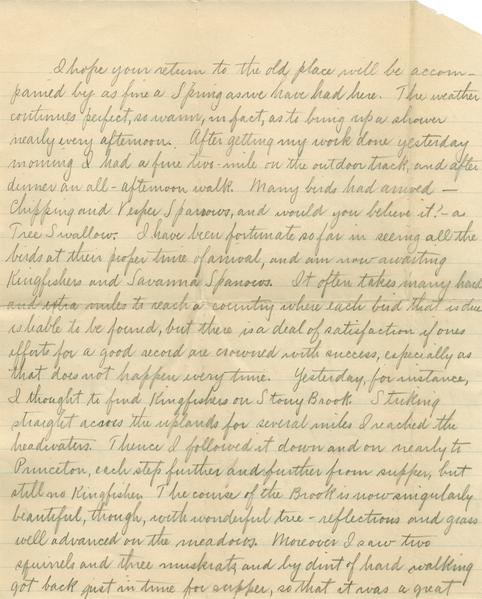 I hope your return to the old place will be accom-
panied by as fine a Spring as we have had here. The weather
continues perfect, so warm, in fact, as to bring up a shower
nearly every afternoon. After getting my work done yesterday
morning I had a fine two-mile on the outdoor track, and after
dinner an all-afternoon walk. Many birds had arrived—
Chipping and Vesper Sparrows, and would you believe it!- a
Tree Swallow. I have been fortunate so far in seeing all the
birds at their proper time of arrival, and am now awaiting
Kingfishers and Savanna Sparrows. It often takes many hard
and extra miles to reach a country where each bird that is due
is liable to be found, but there is a deal of satisfaction if ones
efforts for a good record are crowned with success, especially as
that does not happen every time. Yesterday, for instance,
I thought to find Kingfishers on Stony Brook. Striking
straight across the uplands for several miles I reached the
headwaters. Thence I followed it down and on nearly to
Princeton, each step further and further from supper, but
still no Kingfisher. The course of the Brook is now singularly
beautiful, though, with wonderful tree-reflections and grass
well advanced on the meadows. Moreover I saw two
squirrels and three muskrats, and by dint of hard walking
got back just in time for supper, so that it was a great